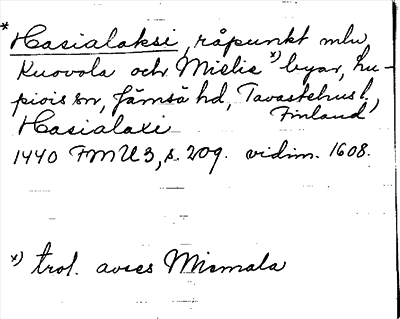 * Hasialaksi, råpunkt mlu
Kuovola och Mielis *) byar, Ku-
piois sn, Jämsä hd, Tavastehus l.,
Finland
Hasialaxi
1440 FMU 3, s. 209. vidim. 1608.
*) trol. avses Miemala